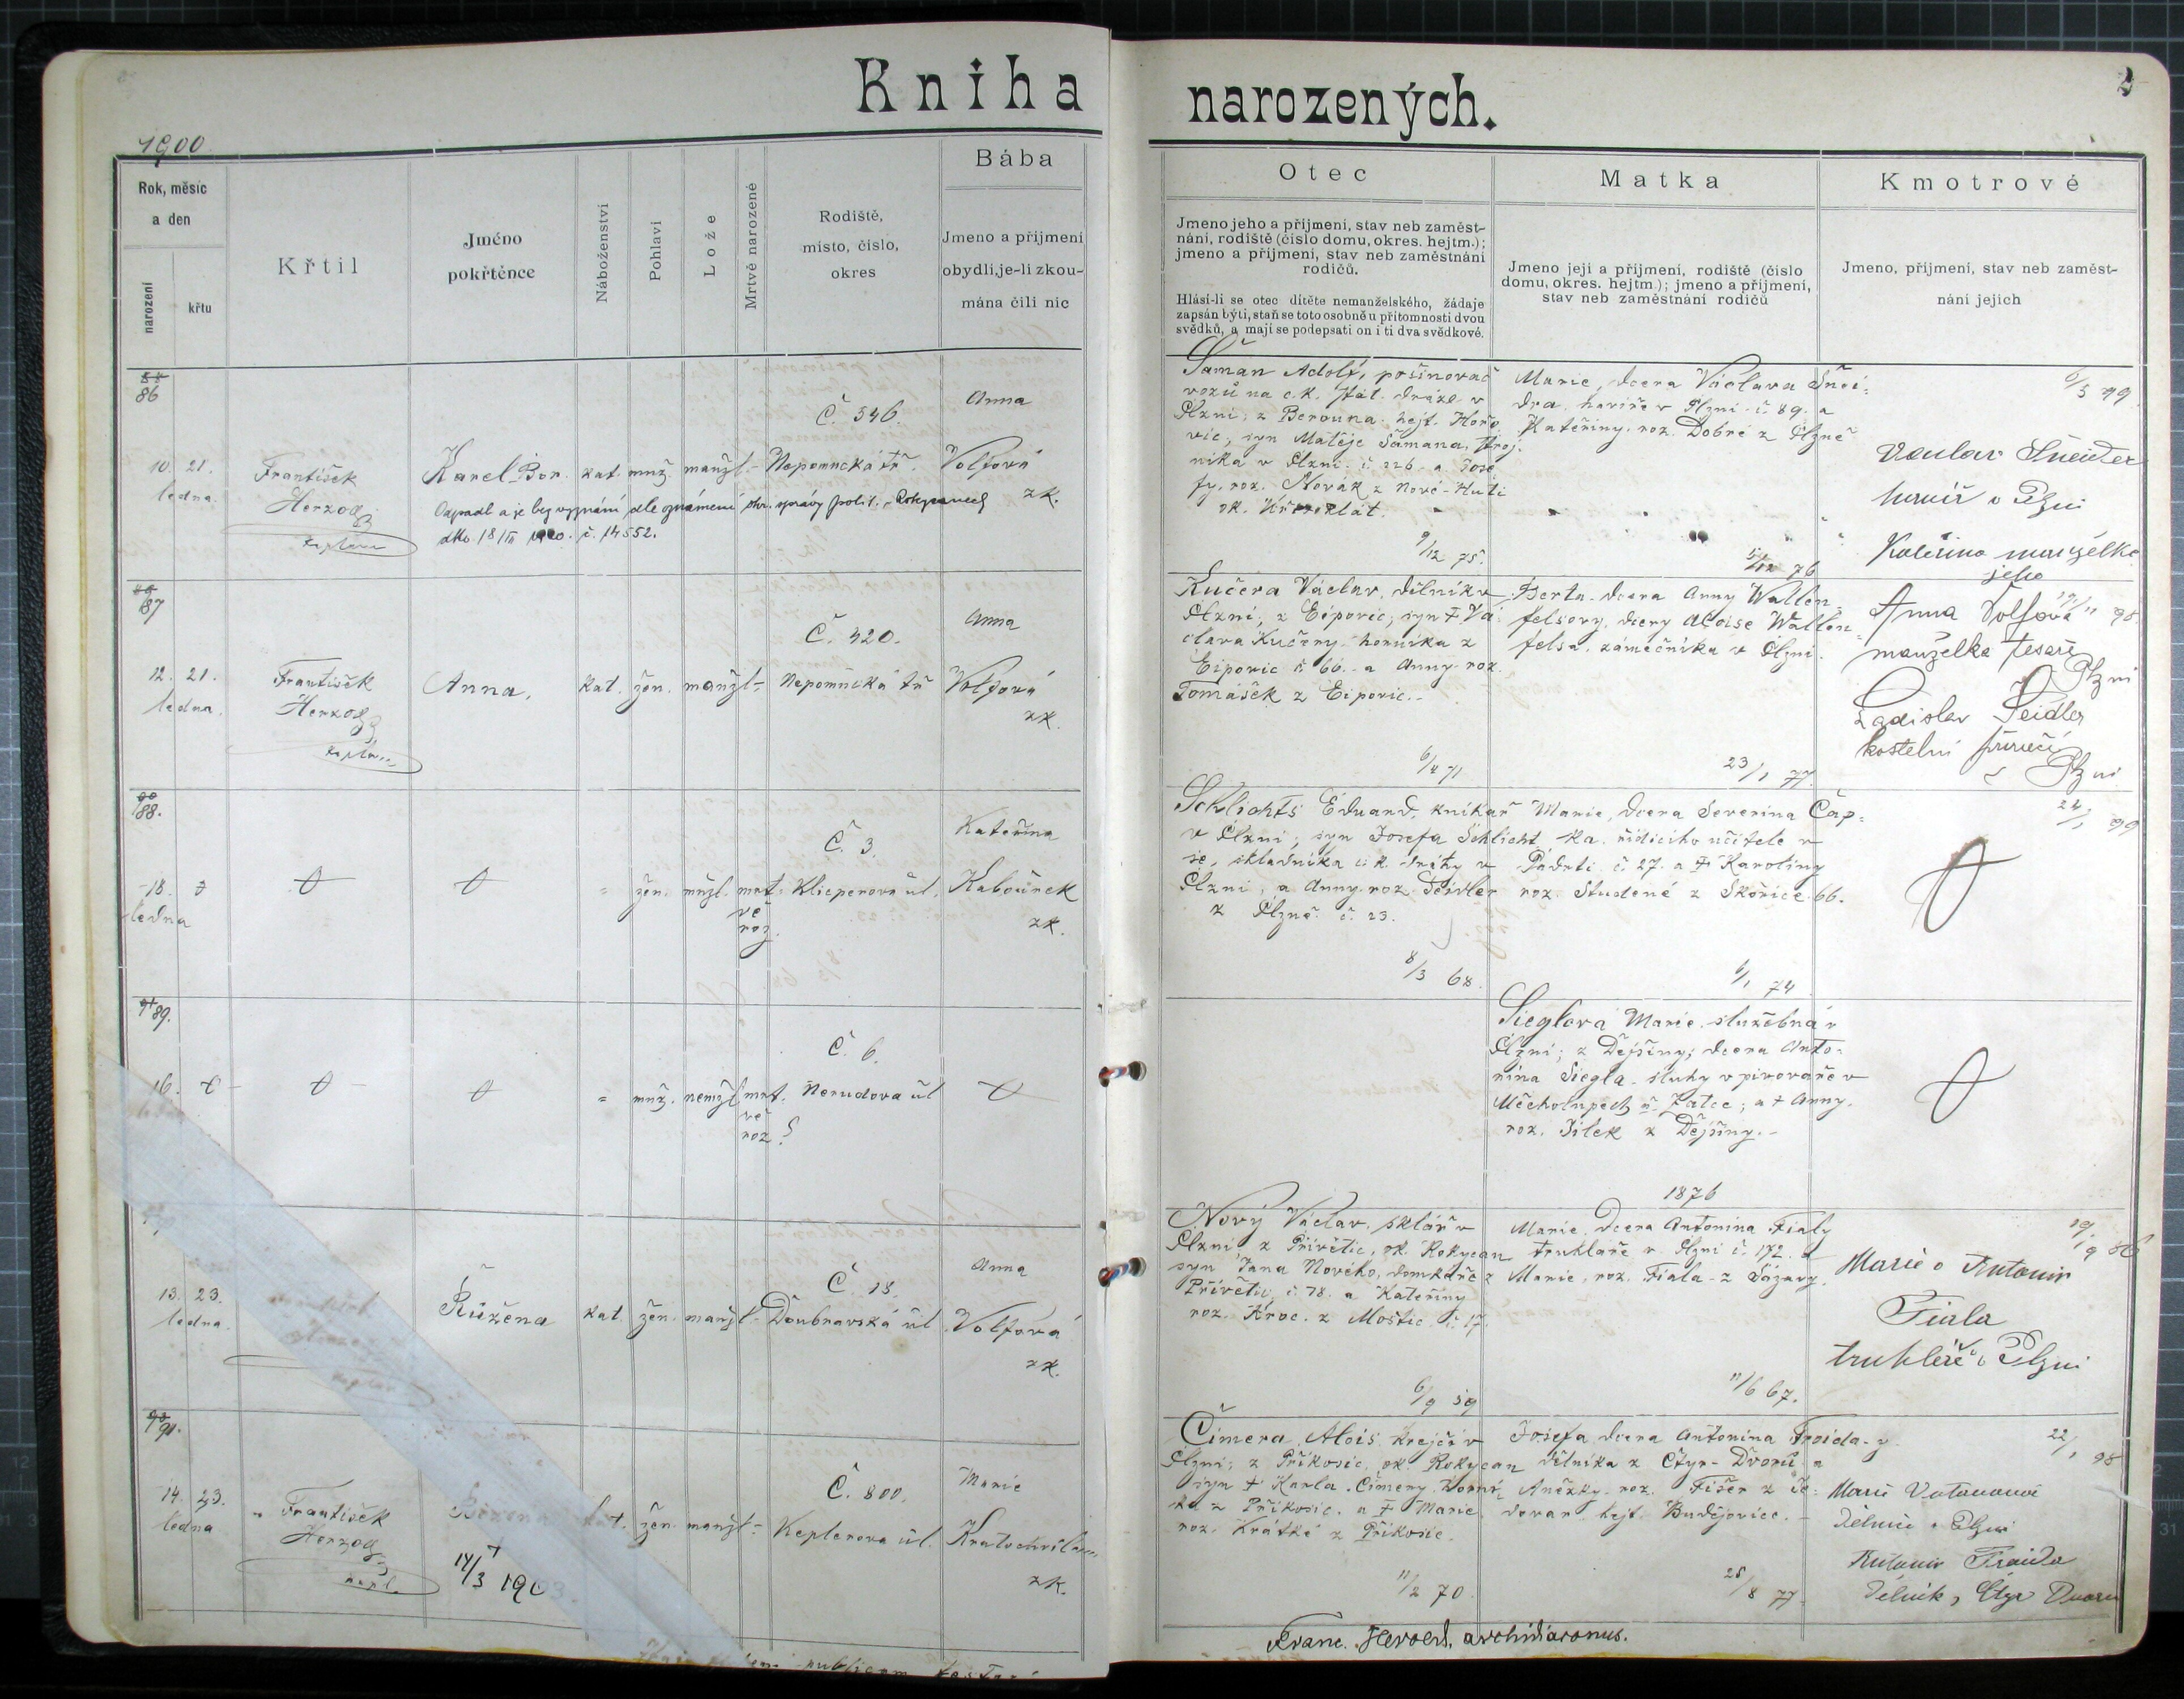 Kniha narozených.
2
1900
Rok, měsíc
a den
narození
křtu
Křtil
Jméno
pokřtěnce
Náboženství
Pohlaví
Lože
Mrtvě narozené
Rodiště,
místo, číslo,
okres
Bába
Jmeno a příjmení
obydlí, je-li zkou-
mána čili nic
Otec
Jmeno jeho a příjmení, stav neb zaměst-
nání, rodiště (číslo domu, okres. hejtm.);
jmeno a příjmení, stav neb zaměstnání
rodičů.
Hlásí-li se otec dítěte nemanželského, žádaje
zapsán býti, staň se toto osobně u přítomnosti dvou
svědků, a mají se podepsati on i ti dva svědkové.
Matka
Jmeno její a příjmení, rodiště (číslo
domu, okres. hejtm.); jmeno a příjmení,
stav neb zaměstnání rodičů
Kmotrové
Jmeno, příjmení, stav neb zaměst-
nání jejich
86
10. 21.
ledna.
František
Herzog
kaplan
Karel Bor.
kat. muž. manžl.
Č. 546.
Nepomucká tř.
Anna
Volfová
zk.
Odpadl a je bez vyznání dle oznámení okr. správy polit. Rokycanech
dto. 18/III 1920. č. 14552.
Šaman Adolf, pošinovač
vozů na c.k. stát. dráze v
Plzni; z Berouna, hejt. Hořo-
vic, syn Matěje Šamana, stroj-
níka v Plzni č. 226 a Jose-
fy, roz. Novák z Nové-Huti
ok. Křivoklát.
9/12 75.
Marie, dcera Václava Šnei-
dra, havíře v Plzni č. 89. a
Kateřiny, roz. Dobré z Plzně
5/12 76
6/5 99
Václav Šneider
havíř v Plzni
Kateřina manželka
jeho
87
12. 21.
ledna.
František
Herzog
kaplan
Anna,
kat. žen. manžl.
Č. 420.
Nepomucká tř
Anna
Volfová
zk.
Kučera Václav, dělník v
Plzni, z Eipovic; syn † Vá-
clava Kučery, horníka z
Eipovic č 66. a Anny roz.
Tomášek z Eipovic.
6/4 71
Berta, dcera Anny Wallen-
felsovy, dcery Aloise Wallen-
felsa, zámečníka v Plzni.
23/1 77.
Anna Volfová
manželka tesaře
Plzni
Ladislav Šeidler
kostelní
v Plzni
88.
18.
ledna
žen. mnžl. mrt-
vě
roz.
Č. 3.
Klicperova ul.
Kateřina
Kabourek
zk.
Schlichts Eduard, knihař
v Plzni; syn Josefa Schlicht-
se, skladníka c.k. dráhy v
Plzni, a Anny roz. Šeidler
z Plzně č. 23.
8/3 68.
Marie, dcera Severina Čap-
ka, řídícího učitele v
Padrti č 27. a † Karoliny
roz. Studené z Skořice 66.
6/1 74
24/1 99
89.
16.
muž. nemžl. mrt-
vě
roz.
Č. 6.
Nerudova ul
Sieglová Marie, služebná v
Plzni; z Dejšiny; dcera Anto-
nína Siegla, sluhy v pivováře v
Měcholupech u Žatce; a † Anny,
roz. Jílek z Dejšiny.
1876
13. 23.
ledna.
Růžena
kat. žen. manžl.
Č. 18.
Doubravská ul
Anna
Volfová
zk.
Nový Václav, sklář v
Plzni, z Přívětic, ok. Rokycan
syn Jana Nového, domkáře z
Přívětic, č. 78. a Kateřiny
roz. Kroc. z Moštic č. 17.
6/9 59
Marie, dcera Antonína Fialy
truhláře v Plzni č. 172. a
Marie, roz. Fiala z Sázavy.
11/6 67.
19/9 86
Marie a Antonin
Fiala
truhlář v Plzni
91.
14. 23.
ledna
František
Herzog
kapl.
Božena
† 14/3 1903
kat. žen. manžl.
Č. 800.
Keplerova ul.
Marie
Kratochvílova
zk.
Čimera Alois, krejčí v
Plzni; z Příkosic, ok. Rokycan
syn † Karla Čimery, horní-
ka z Příkosic, a † Marie,
roz. Krátké z Příkosic.
11/2 70.
Josefa, dcera Antonína Froida-y
dělníka z Čtyr-Dvorů a
Anežky, roz. Fišer z
hejt. Budějovice.
28/8 77.
22/1 98
Marie
Dělnice v Plzni
Antonin
Dělník, Čtyr Dvorů
Franc. Herold, archidiaconus.